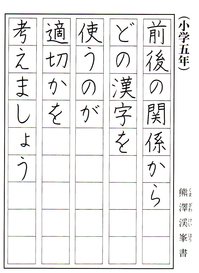 （小学五年）
前後の関係から
どの漢字を
使うのが
適切かを
考えましょう
熊澤渓峯書
くまざわけいほう